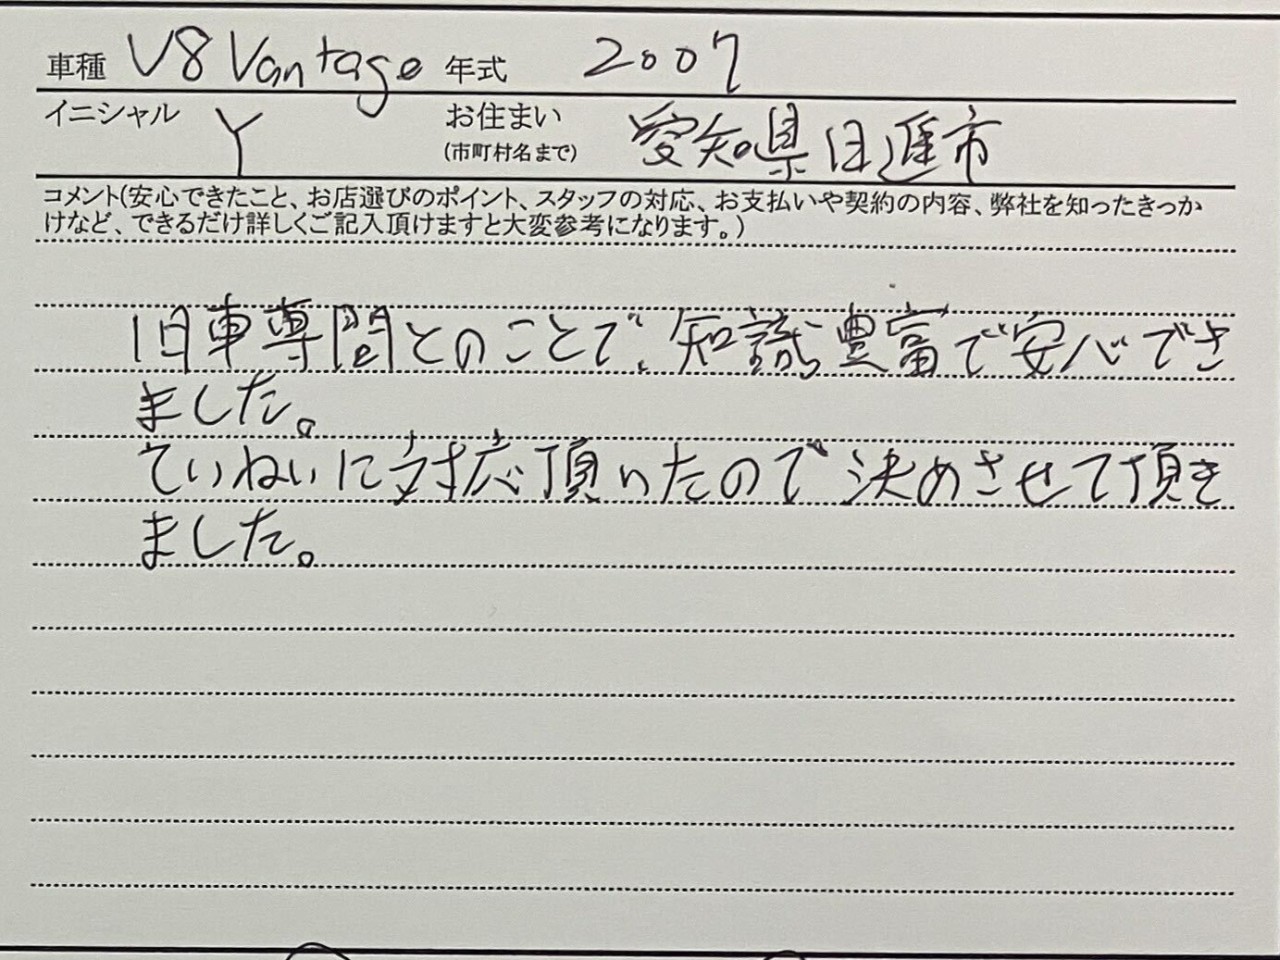 車種 V8 Vantage 年式 2007
イニシャル Y お住まい 愛知県日進市
(市町村名まで)
コメント(安心できたこと、お店選びのポイント、スタッフの対応、お支払いや契約の内容、弊社を知ったきっか
けなど、できるだけ詳しくご記入頂けますと大変参考になります。)
旧車専門とのことで、知識豊富で安心でき
ました。
ていねいに対応頂いたので決めさせて頂き
ました。